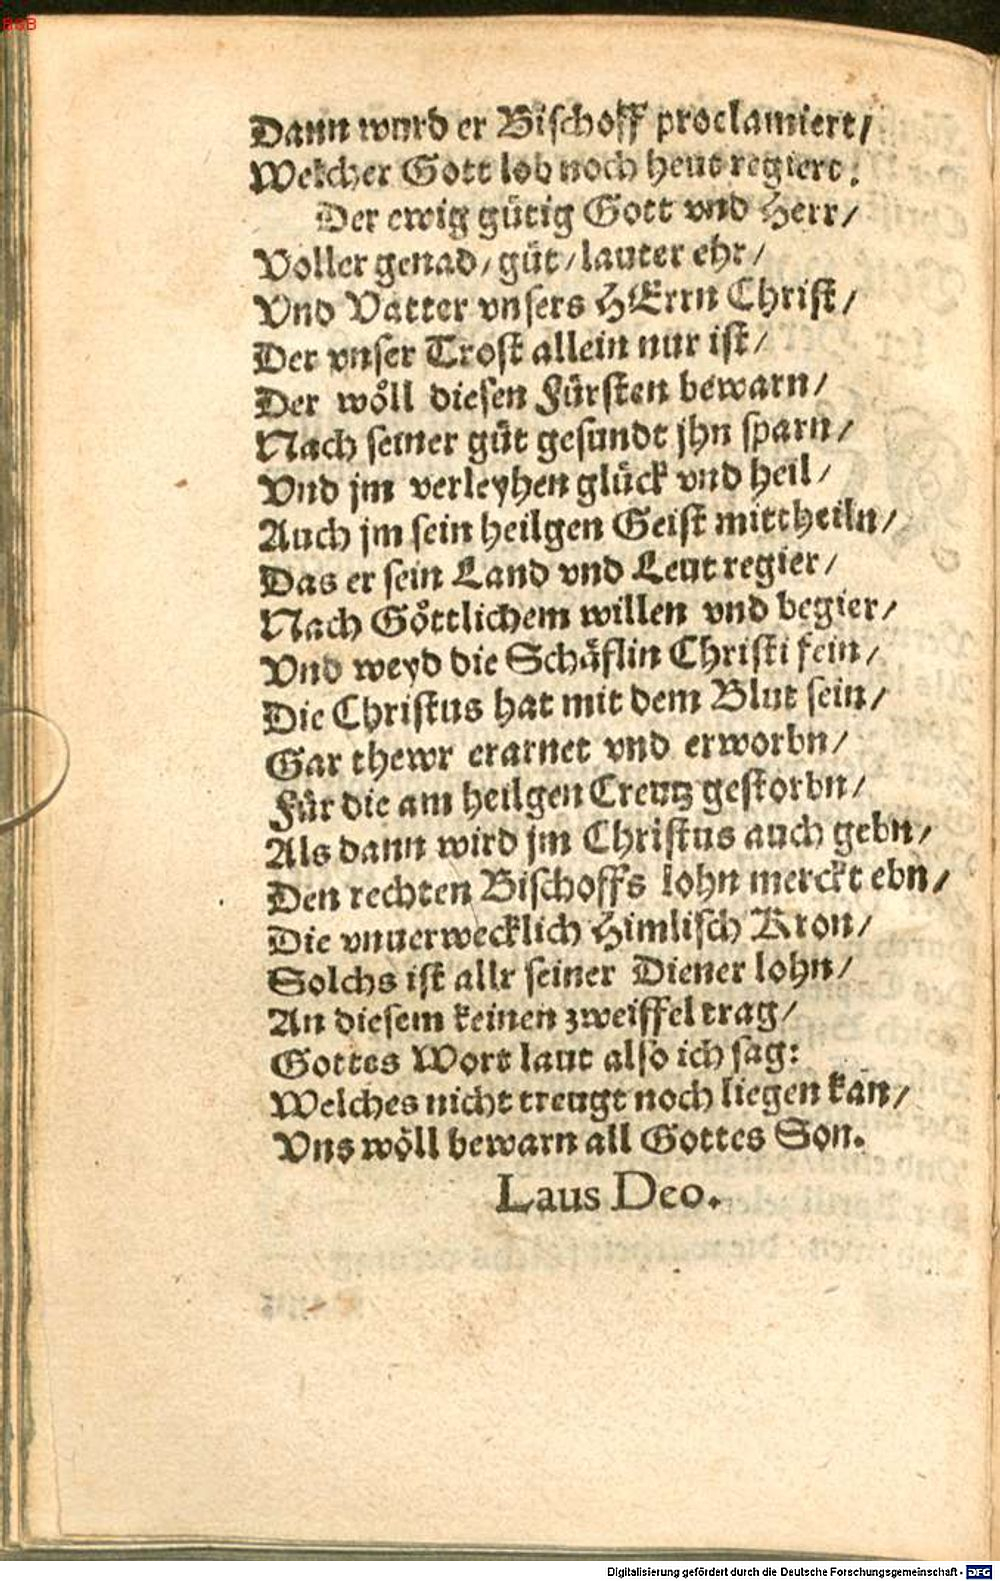 BSB
Dann wurd er Bischoff proclamiert/
Welcher Gott lob noch heut regiert.
Der ewig gütig Gott vnd Herr/
Voller genad/ güt/ lauter ehr/
Vnd Vatter vnsers HErrn Christ/
Der vnser Trost allein nur ist/
Der wöll diesen Fürsten bewarn/
Nach seiner güt gesundt jhn sparn/
Vnd jm verleyhen glück vnd heil/
Auch jm sein heilgen Geist mittheiln/
Das er sein Land vnd Leut regier/
Nach Göttlichem willen vnd begier/
Vnd weyd die Schäflin Christi fein/
Die Christus hat mit dem Blut sein/
Gar thewr erarnet vnd erworbn/
Für die am heilgen Creutz gestorbn/
Als dann wird jm Christus auch gebn/
Den rechten Bischoffs lohn merckt ebn/
Die vnuerwecklich Himlisch Kron/
Solchs ist allr seiner Diener lohn/
An diesem keinen zweiffel trag/
Gottes Wort laut also ich sag:
Welches nicht treugt noch liegen kan/
Vns wöll bewarn all Gottes Son.
Laus Deo.
Digitalisierung gefördert durch die Deutsche Forschungsgemeinschaft - DFG